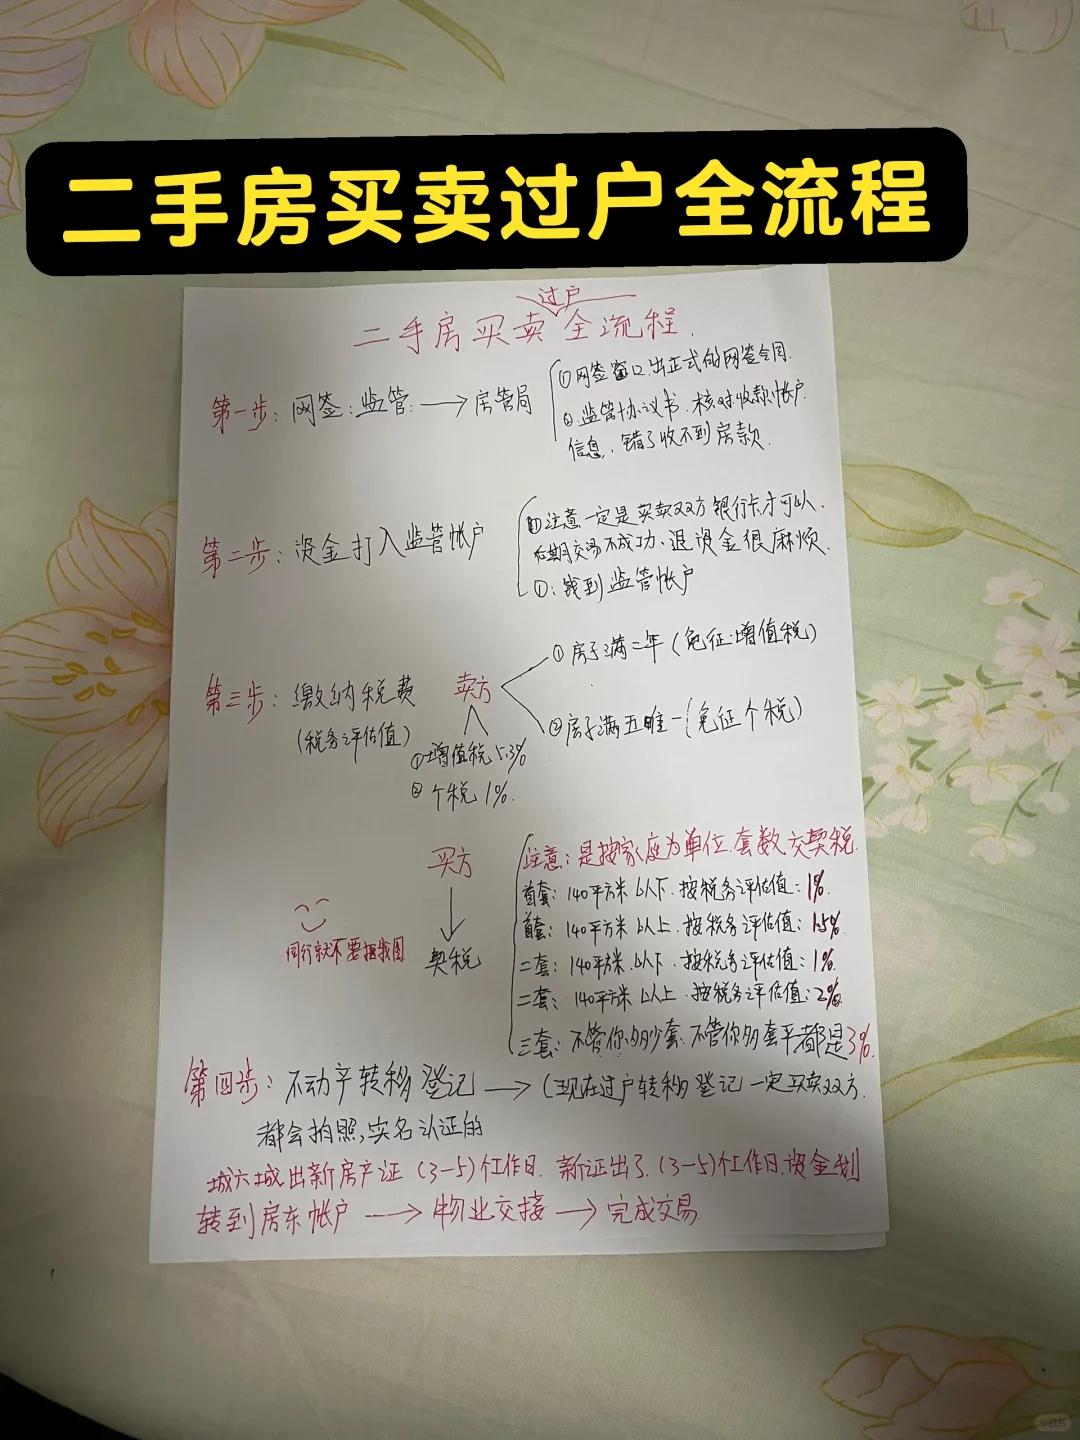 二手房买卖过户全流程
过户
二手房买卖全流程.
第一步: 网签:监管: → 房管局
①网签窗口.出正式的网签合同.
②.监管协议书.核对收款帐户
信息,错了收不到房款.
第二步: 资金打入监管帐户
①注意一定是买卖双方银行卡才可以.
后期交易不成功、退资金很麻烦.
①:钱到监管帐户
第三步: 缴纳税费 卖方
(税务评估值)
①房子满二年(免征:增值税)
②房子满五唯一(免征个税)
①增值税5.3%
②个税1%.
买方
契税
注意:是按家庭为单位.套数交契税.
首套:140平方米以下.按税务评估值:1%.
首套:140平方米以上.按税务评估值:1.5%
二套:140平方米.以下.按税务评估值:1%.
二套:140平方米以上.按税务评估值:2%.
三套:不管你多少套.不管你多套平都是3%.
同行就不要抠我图
第四步:不动产转移登记 → (现在过户转移登记一定买卖双方.
都会拍照,实名认证的
城六城出新房产证(3-5)个工作日.新证出了.(3-5)个工作日.资金划
转到房东帐户 → 物业交接 → 完成交易.
小红书